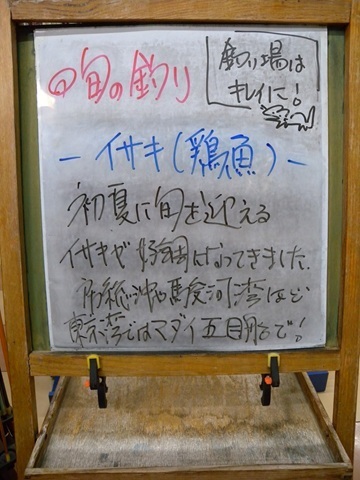 旬の釣り
釣り場は
キレイに!
－イサキ(鶏魚)－
初夏に旬を迎える
イサキが好調になってきました。
房総沖や駿河湾など
東京湾ではマダイ五目船で!